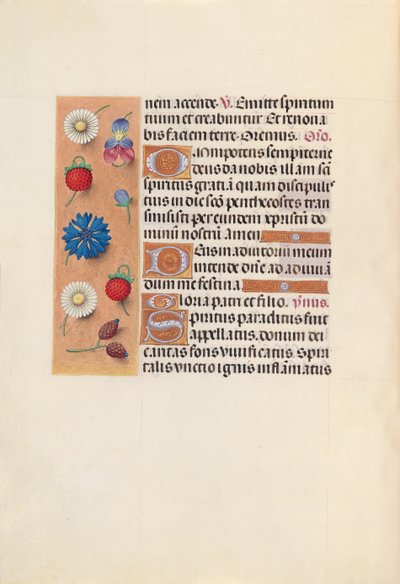 nem accende. V. Emitte spiritum
tuum et creabuntur. Et renova
bis faciem terre. Oremus. Oro.
Omnipotens sempiterne
deus da nobis illam sci
spiritus gratiā quam discipulis
tuis in die scō penthecostes tran
smisisti per eundem xpristū do
minū nostrū amen
Deus in adiutoriū meum
intende dn̄e ad adiuvā
dum me festina
Gloria patri et filio. ymnus.
Spiritus paraclitus fuit
appellatus. donum dei
caritas fons vivificatus. Spiri
talis unctio ignis inflāmatus